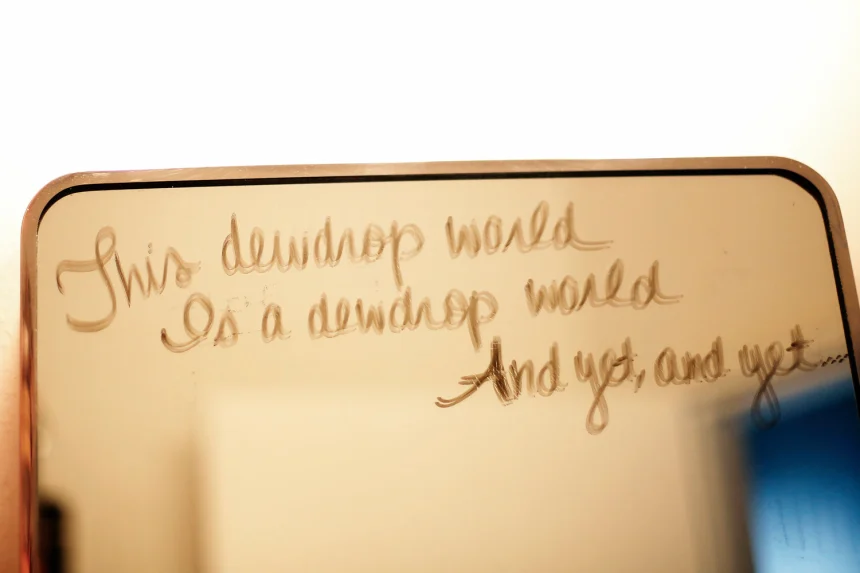 This dewdrop world
Is a dewdrop world
And yet, and yet....